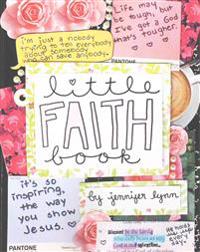 i'm just a nobody
trying to tell everybody
about somebody
who can save anybody.
Life may
be tough, but
I've got a God
that's tougher.
PANTONE
little
FAITH
book
it's so
inspiring,
the way
you show
Jesus.
by jennifer lynn
blessed
PANTONE
every
day.